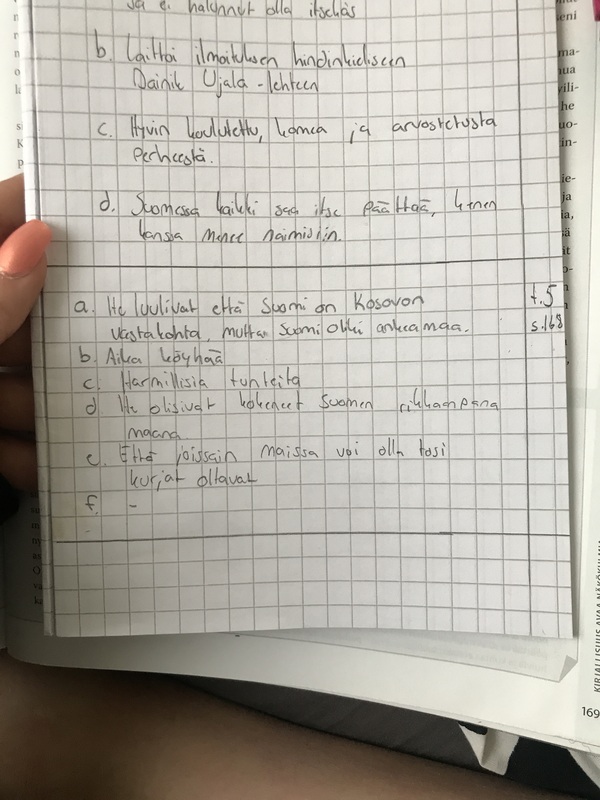 ja ei halunnut olla itsekäs
b. Laittoi ilmoituksen hindinkieliseen
Dainik Ujala -lehteen
c. Hyvin koulutettu, komea ja arvostetusta
perheestä.
d. Suomessa kaikki saa itse päättää, kenen
kanssa menee naimisiin.
a. He luulivat että Suomi on Kosovon t.5
vastakohta, mutta Suomi olikin ankea maa. s.168
b. Aika köyhää
c. Harmillisia tunteita
d. He olisivat kokeneet Suomen rikkaampana
maana
e. Että joissain maissa voi olla tosi
kurjat oltavat
f. -
KIRJALLISUUS AVAA NÄKÖKULMIA
169